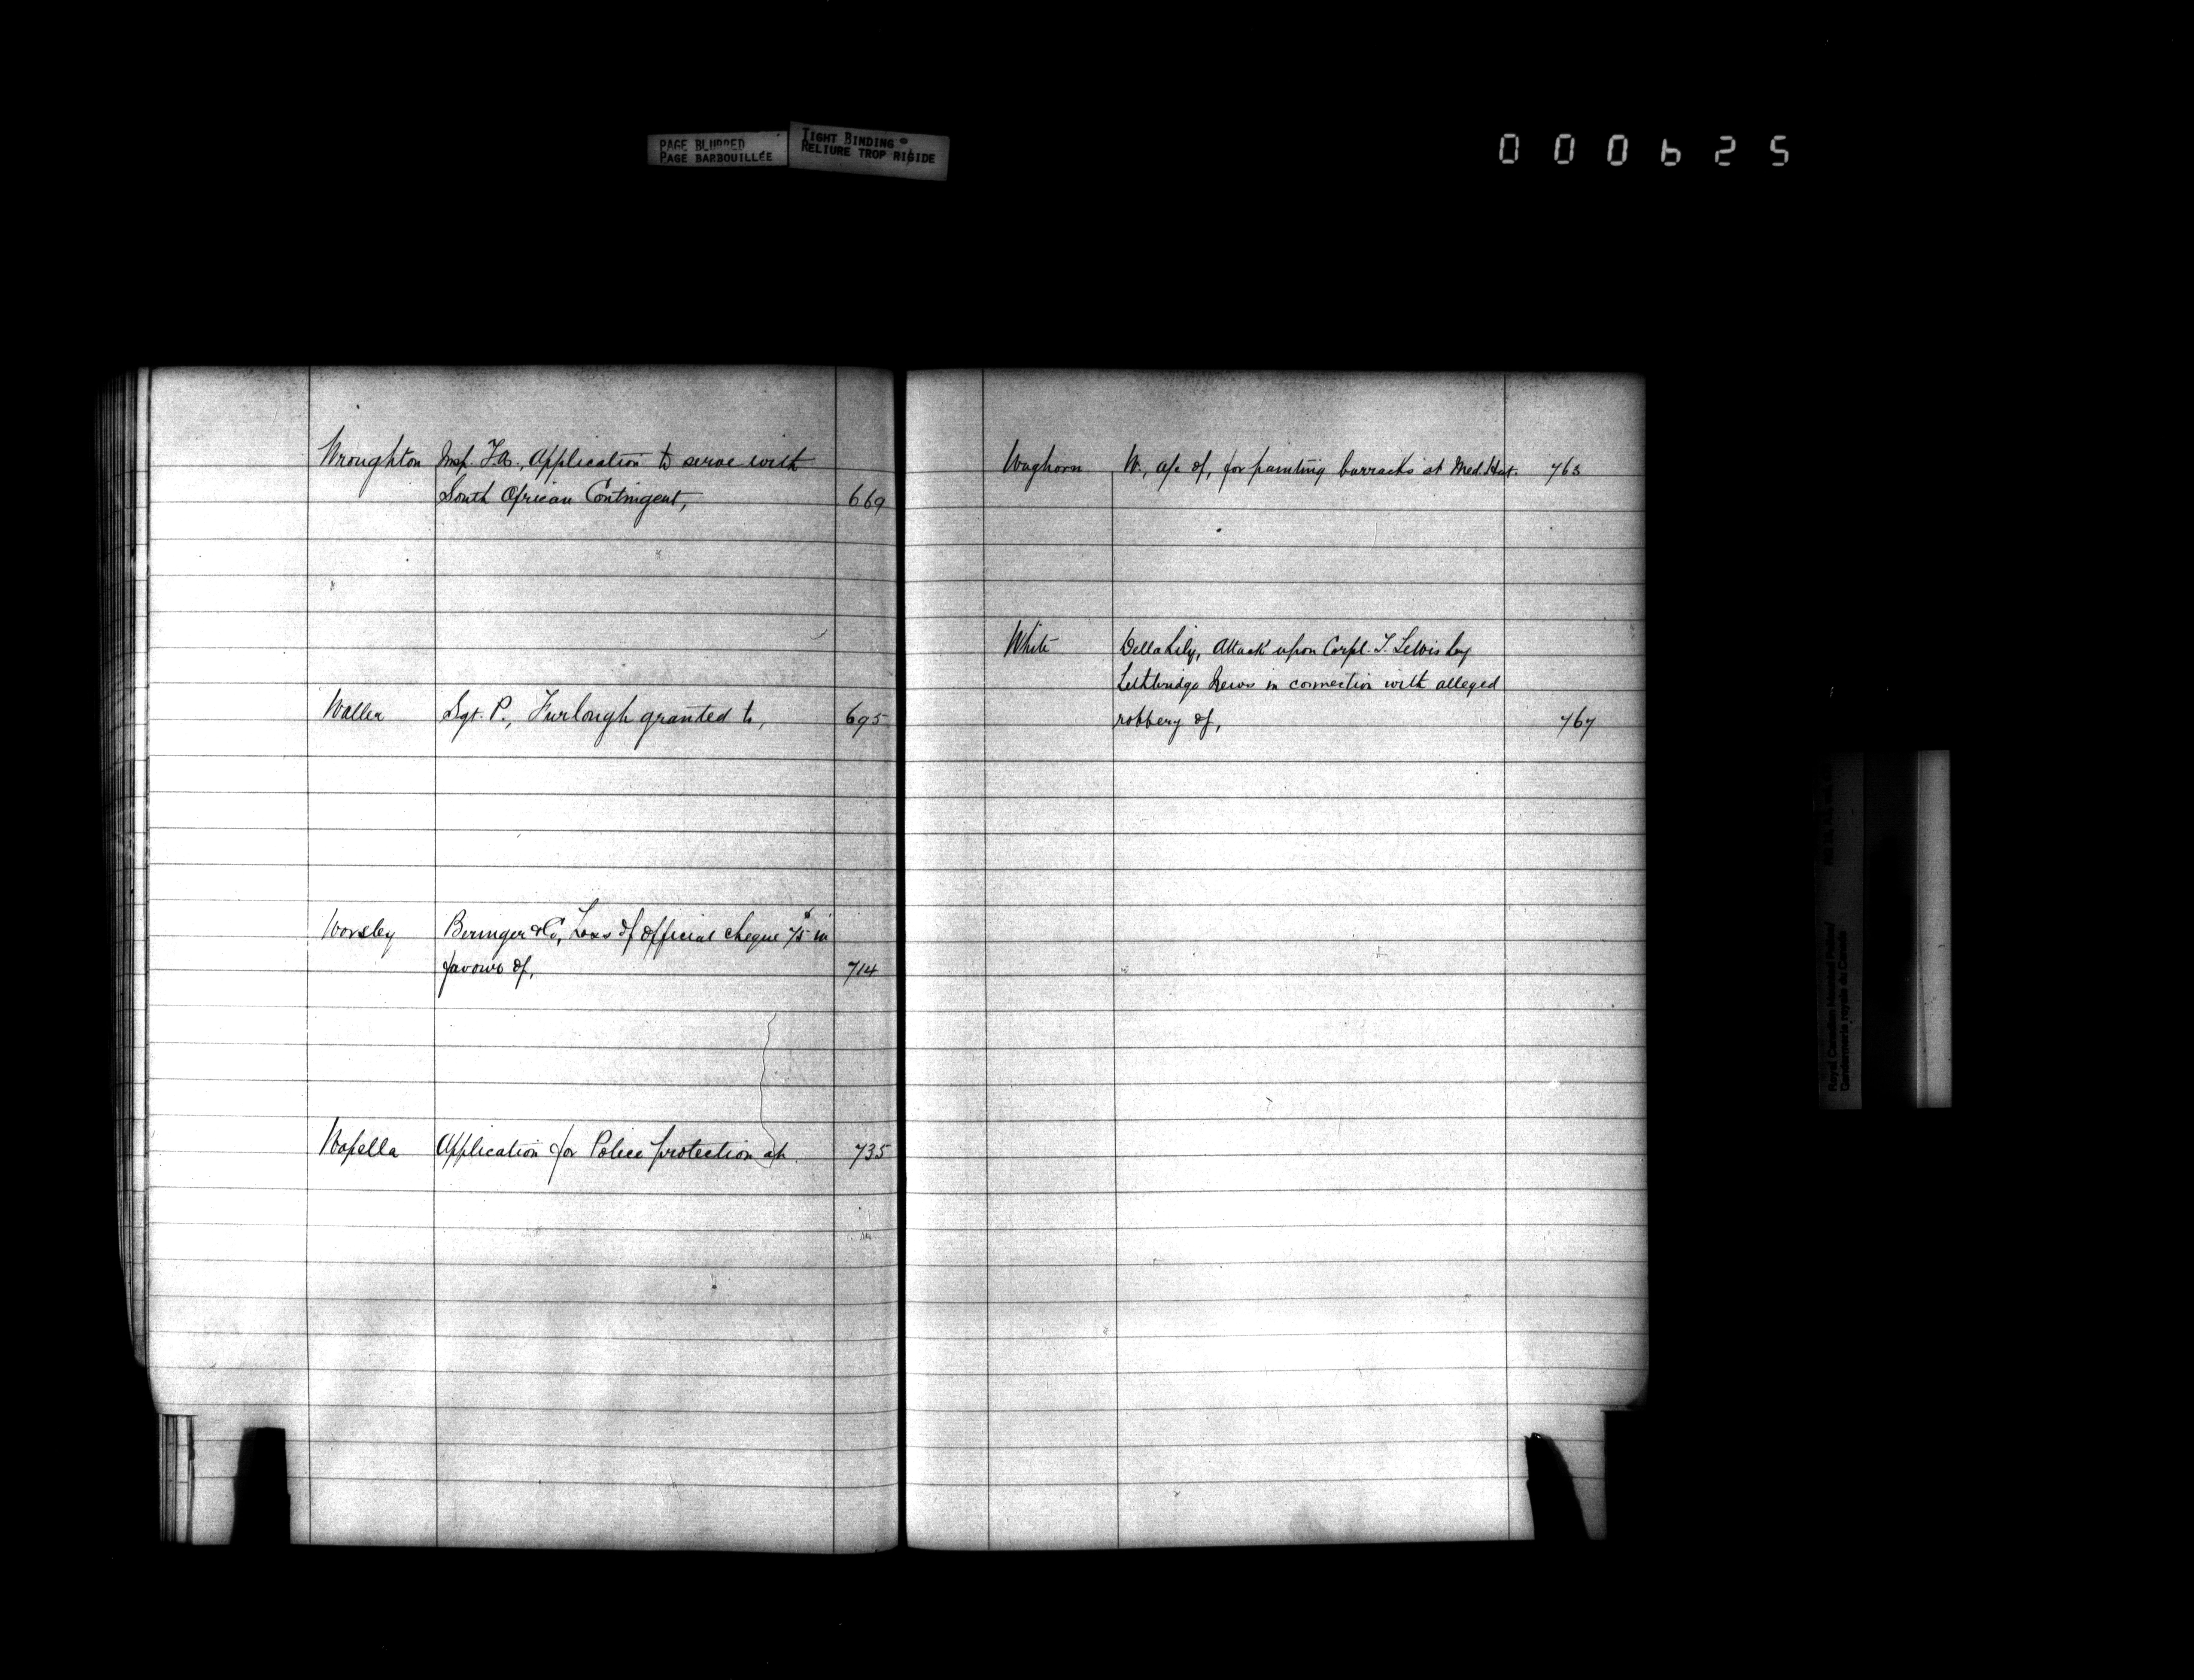 PAGE BLURRED
PAGE BARBOUILLÉE
TIGHT BINDING
RELIURE TROP RIGIDE
000625
Wroughton Insp. T.A., Application to serve with
South African Contingent, 669
Waller Sgt. P., Furlough granted to, 695
Worsley Beringer & Co, Loss of official cheque 75 in
favour of, 714
Wapella Application for Police protection at 735
Waghorn W., a/c of, for painting barracks at Med. Hat. 763
White Della Lily, Attack upon Corpl. T. Lewis by
Lethbridge News in connection with alleged
robbery of, 767
Royal Canadian Mounted Police/
Gendarmerie royale du Canada